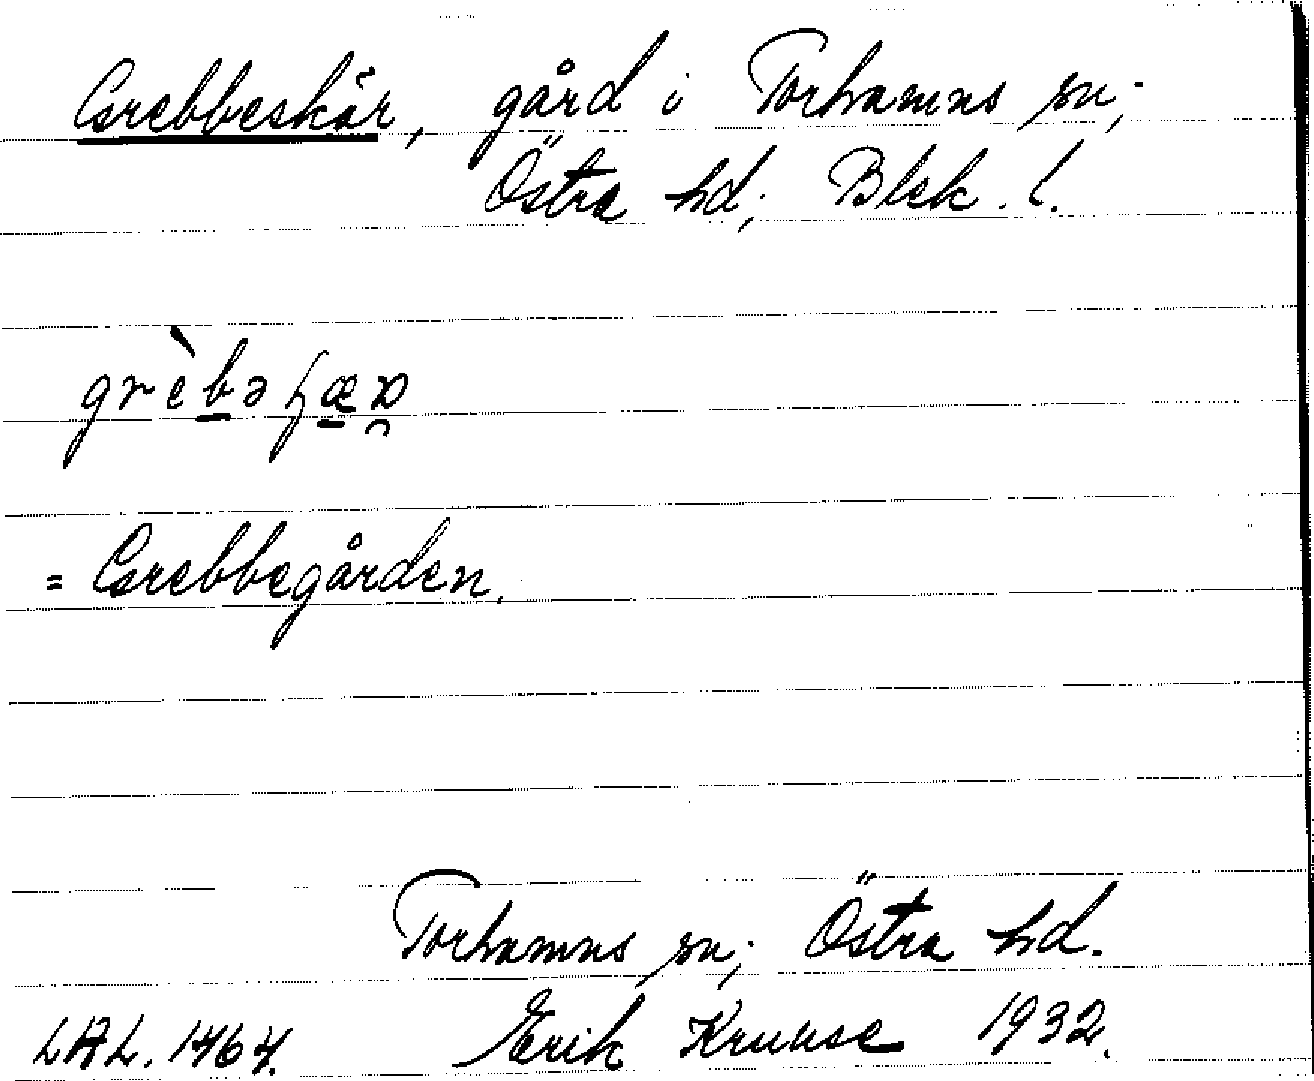 Grebbeskär, gård i Torhamns sn;
Östra hd; Blek. l.
= Grebbegården.
Torhamns sn; Östra hd.
LAL. 1464. Erik Kruuse 1932.